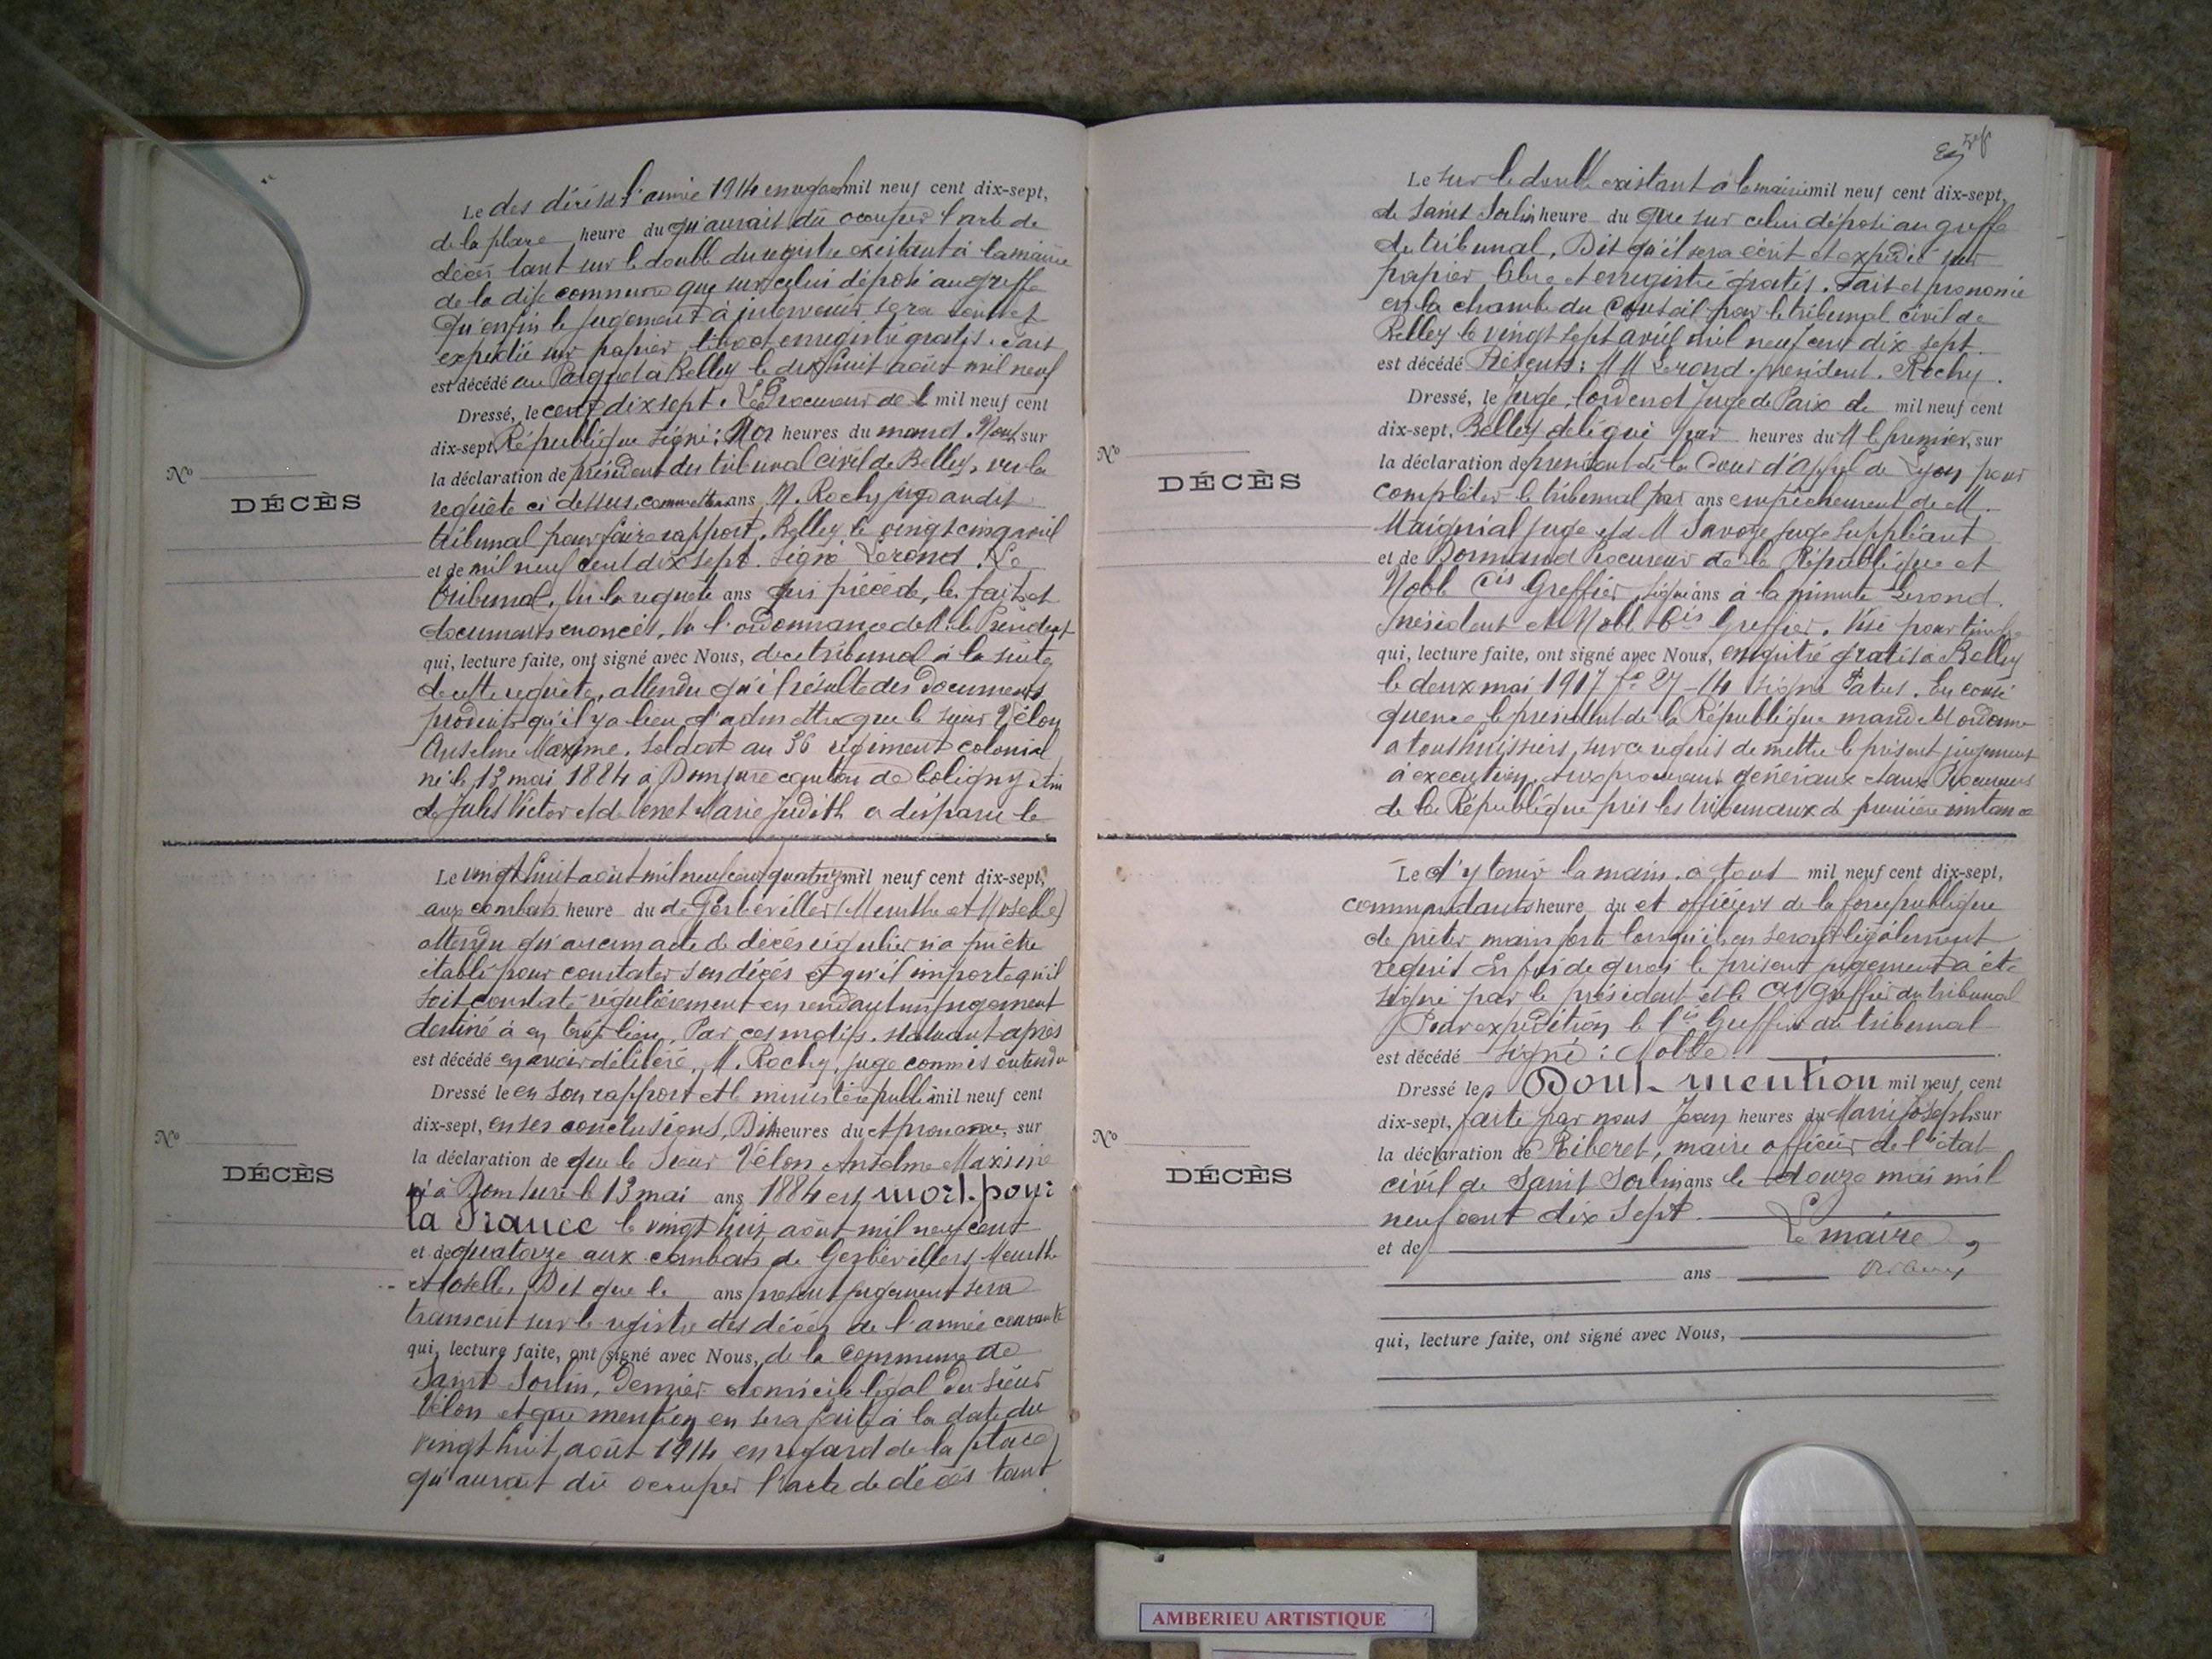 Le des décès de l'année 1914 en regard mil neuf cent dix-sept,
de la place heure du qu'aurait dû occuper l'acte de
décès tant sur le double du registre existant à la mairie
de la dite commune que sur celui déposé au greffe
Qu'enfin le jugement à intervenir sera écrit et
expédié sur papier libre et enregistré gratis. Fait
est décédé au Parquet à Belley le dix huit août mil neuf
Dressé, le cent dix sept. Le Procureur de l mil neuf cent
dix-sept, République signé: heures du mand. Nous, sur
la déclaration de président du tribunal civil de Belley, vu la
requête ci dessus, commettons ans M. Rochy juge audit
tribunal pour faire rapport. Belley le vingt cinq avril
et de mil neuf cent dix sept. Signé Lerond. Le
tribunal, Vu la requête ans qui précède, les faits et
documents énoncés, Vu l'ordonnance de M. le Président
qui, lecture faite, ont signé avec Nous, de ce tribunal à la suite
de cette requête, attendu qu'il résulte des documents
produits qu'il y a lieu d'admettre que le sieur Vélon
Anselme Maxime, soldat au 36 régiment colonial
né le 13 mai 1884 à Domsure canton de Coligny
de Jules Victor et de Venet Marie Judith a disparu le
Le vingt huit août mil neuf cent quatorze mil neuf cent dix-sept,
aux combats heure du de Gerbeviller (Meurthe et Moselle)
attendu qu'aucun acte de décès régulier n'a pu être
établi pour constater son décès et qu'il importe qu'il
soit constaté régulièrement en rendant un jugement
destiné à en tenir lieu. Par ces motifs, statuant après
est décédé en avoir délibéré, M. Rochy, juge commis entendu
Dressé le en son rapport et le ministère public mil neuf cent
dix-sept, en ses conclusions, Dit heures du et prononce, sur
la déclaration de que le Sieur Vélon Anselme Maxime
né à Domsure le 13 mai ans 1884 est mort pour
la France le vingt huit août mil neuf cent
et de quatorze aux combats de Gerbévillers, Meurthe
et Moselle, Dit que le ans présent jugement sera
transcrit sur le registre des décès de l'année courante
qui, lecture faite, ont signé avec Nous, de la commune de
Saint Sorlin, dernier domicile légal du sieur
Vélon et que mention en sera faite à la date du
vingt huit août 1914 en regard de la place
qu'aurait dû occuper l'acte de décès tant
Nº
DÉCÈS
Nº
DÉCÈS
Le sur le double existant à la mairie mil neuf cent dix-sept,
de Saint Sorlin heure du que sur celui déposé au greffe
du tribunal, Dit qu'il sera écrit et expédié sur
papier libre et enregistré gratis. Fait et prononcé
en la chambre du Conseil par le tribunal civil de
Belley le vingt sept avril mil neuf cent dix sept.
est décédé Présents: MM Lerond, président. Rochy.
Dressé, le juge, juge de Paix de mil neuf cent
dix-sept, Belley délégué par heures du M le premier, sur
la déclaration de président de la Cour d'Appel de Lyon pour
compléter le tribunal par ans empêchement de M.
Maignial juge et de M Savoye juge suppléant
et de Dormand Procureur de la République et
Noble Cis Greffier, signé ans à la minute Lerond.
Président et Noble Cis Greffier. Visé pour timbre
qui, lecture faite, ont signé avec Nous, enregistré gratis à Belley
le deux mai 1917 fo 27 - 14 signé Patus. En consé
quence, le président de la République mande et ordonne
à tous huissiers, sur ce requis de mettre le présent jugement
à exécution, Aux procureurs généraux et aux Procureurs
de la République près les tribunaux de première instance
Le d'y tenir la main. à tous mil neuf cent dix-sept,
commandants heure du et officiers de la force publique
de prêter main forte lorsqu'ils en seront légalement
requis. En foi de quoi le présent jugement a été
signé par le président et le Cis Greffier du tribunal
Pour expédition le Cis Greffier du tribunal
est décédé signé: Noble
Dressé le, Dont mention mil neuf cent
dix-sept, faite par nous Jean heures du Marie Joseph, sur
la déclaration de Riberet, maire officier de l'état
civil de Saint Sorlin ans le douze mai mil
neuf cent dix sept.
et de Le maire,
ans
qui, lecture faite, ont signé avec Nous,
Nº
DÉCÈS
Nº
DÉCÈS
AMBERIEU ARTISTIQUE